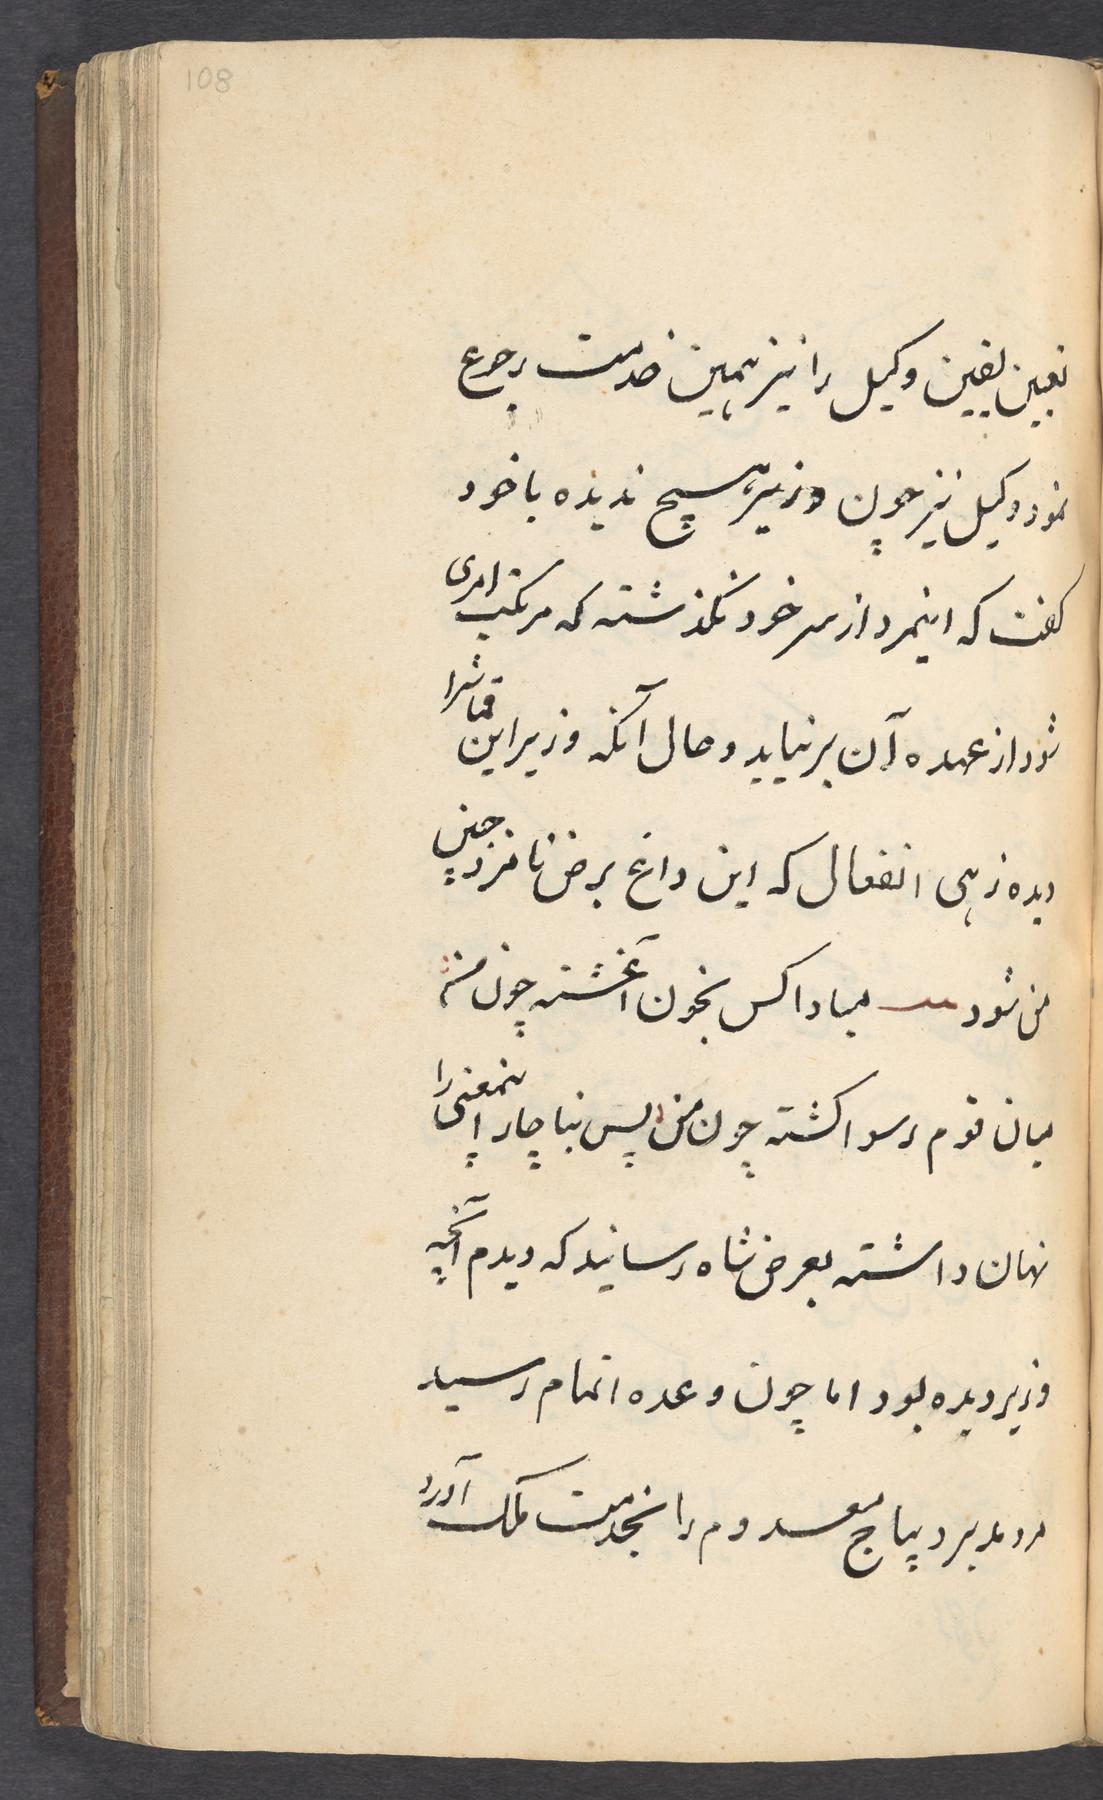 108
تعین یقین وکیل را نیز بهمین خدمت رجوع
نمود وکیل نیز چون وزیر هیچ ندیده با خود
کفت که اینمرد از سر خود نکذشته که مرتکب امری
شود از عهده آن برنیاید و حال آنکه وزیر این قماشرا
دیده زهی انفعال که این داغ برص نامزد جبین
من شود مبادا کس بخون آغشته چون من
میان قوم رسوا کشته چون من پس بناچار اینمعنی را
نهان داشته بعرض شاه رسانید که دیدم آنچه
وزیر دیده بود اما چون وعده اتمام رسید
مرد مدبر دیباج معدوم را بخدمت ملک آورد